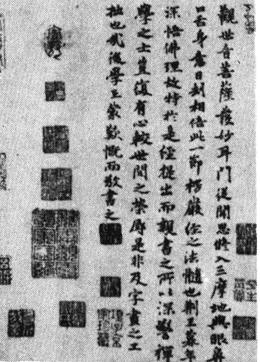 觀世音菩薩從妙耳門從聞思修入三摩地與眼鼻
口舌身意日刻相倍此一節楞嚴經之法髓也荆王暮年
深悟佛理故特於是經提出而親書之所以深警禪
學之士豈復有心較世間之榮辱是非及字畫之工
拙也哉後學王蒙歎慨而敬書之